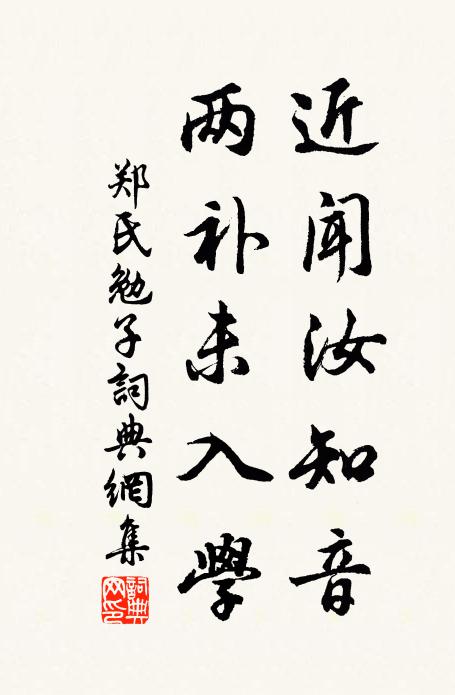 近闻汝知音
两补未入學
郑氏勉子詞典網集
詞典網印